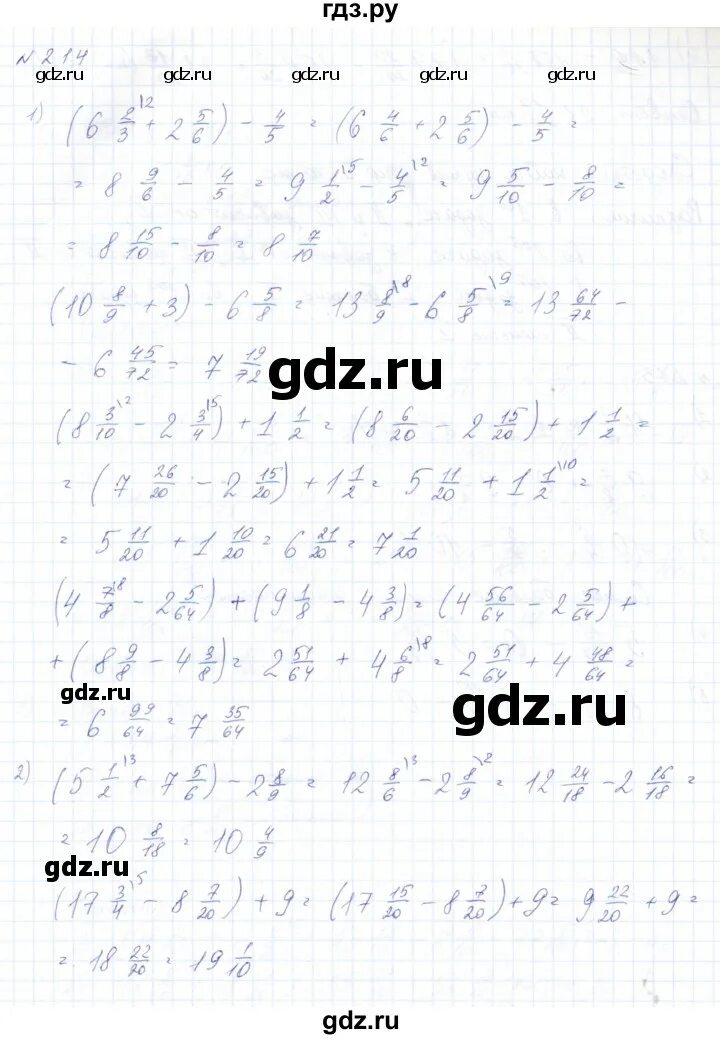 гдз.ру
N 214
gdz.ru gdz.ru gdz.ru gdz.ru
1) (6 2/3\2 + 2 5/6) - 4/5 = (6 4/6 + 2 5/6) - 4/5 =
= 8 9/6 - 4/5 = 9 1/2\5 - 4/5\2 = 9 5/10 - 8/10 =
= 8 15/10 - 8/10 = 8 7/10
(10 8/9 + 3) - 6 5/8 = 13 8/9\8 - 6 5/8\9 = 13 64/72 -
- 6 45/72 = 7 19/72
gdz.ru
(8 3/10\2 - 2 3/4\5) + 1 1/2 = (8 6/20 - 2 15/20) + 1 1/2 =
= (7 26/20 - 2 15/20) + 1 1/2 = 5 11/20 + 1 1/2\10 =
= 5 11/20 + 1 10/20 = 6 21/20 = 7 1/20
(4 7/8\8 - 2 5/64) + (9 1/8 - 4 3/8) = (4 56/64 - 2 5/64) +
+ (8 9/8 - 4 3/8) = 2 51/64 + 4 6/8\8 = 2 51/64 + 4 48/64 =
gdz.ru gdz.ru
= 6 99/64 = 7 35/64
2) (5 1/2\3 + 7 5/6) - 2 8/9 = 12 8/6\3 - 2 8/9\2 = 12 24/18 - 2 16/18 =
= 10 8/18 = 10 4/9
gdz.ru gdz.ru
(17 3/4\5 - 8 7/20) + 9 = (17 15/20 - 8 7/20) + 9 = 9 22/20 + 9 =
= 18 22/20 = 19 1/10
gdz.ru